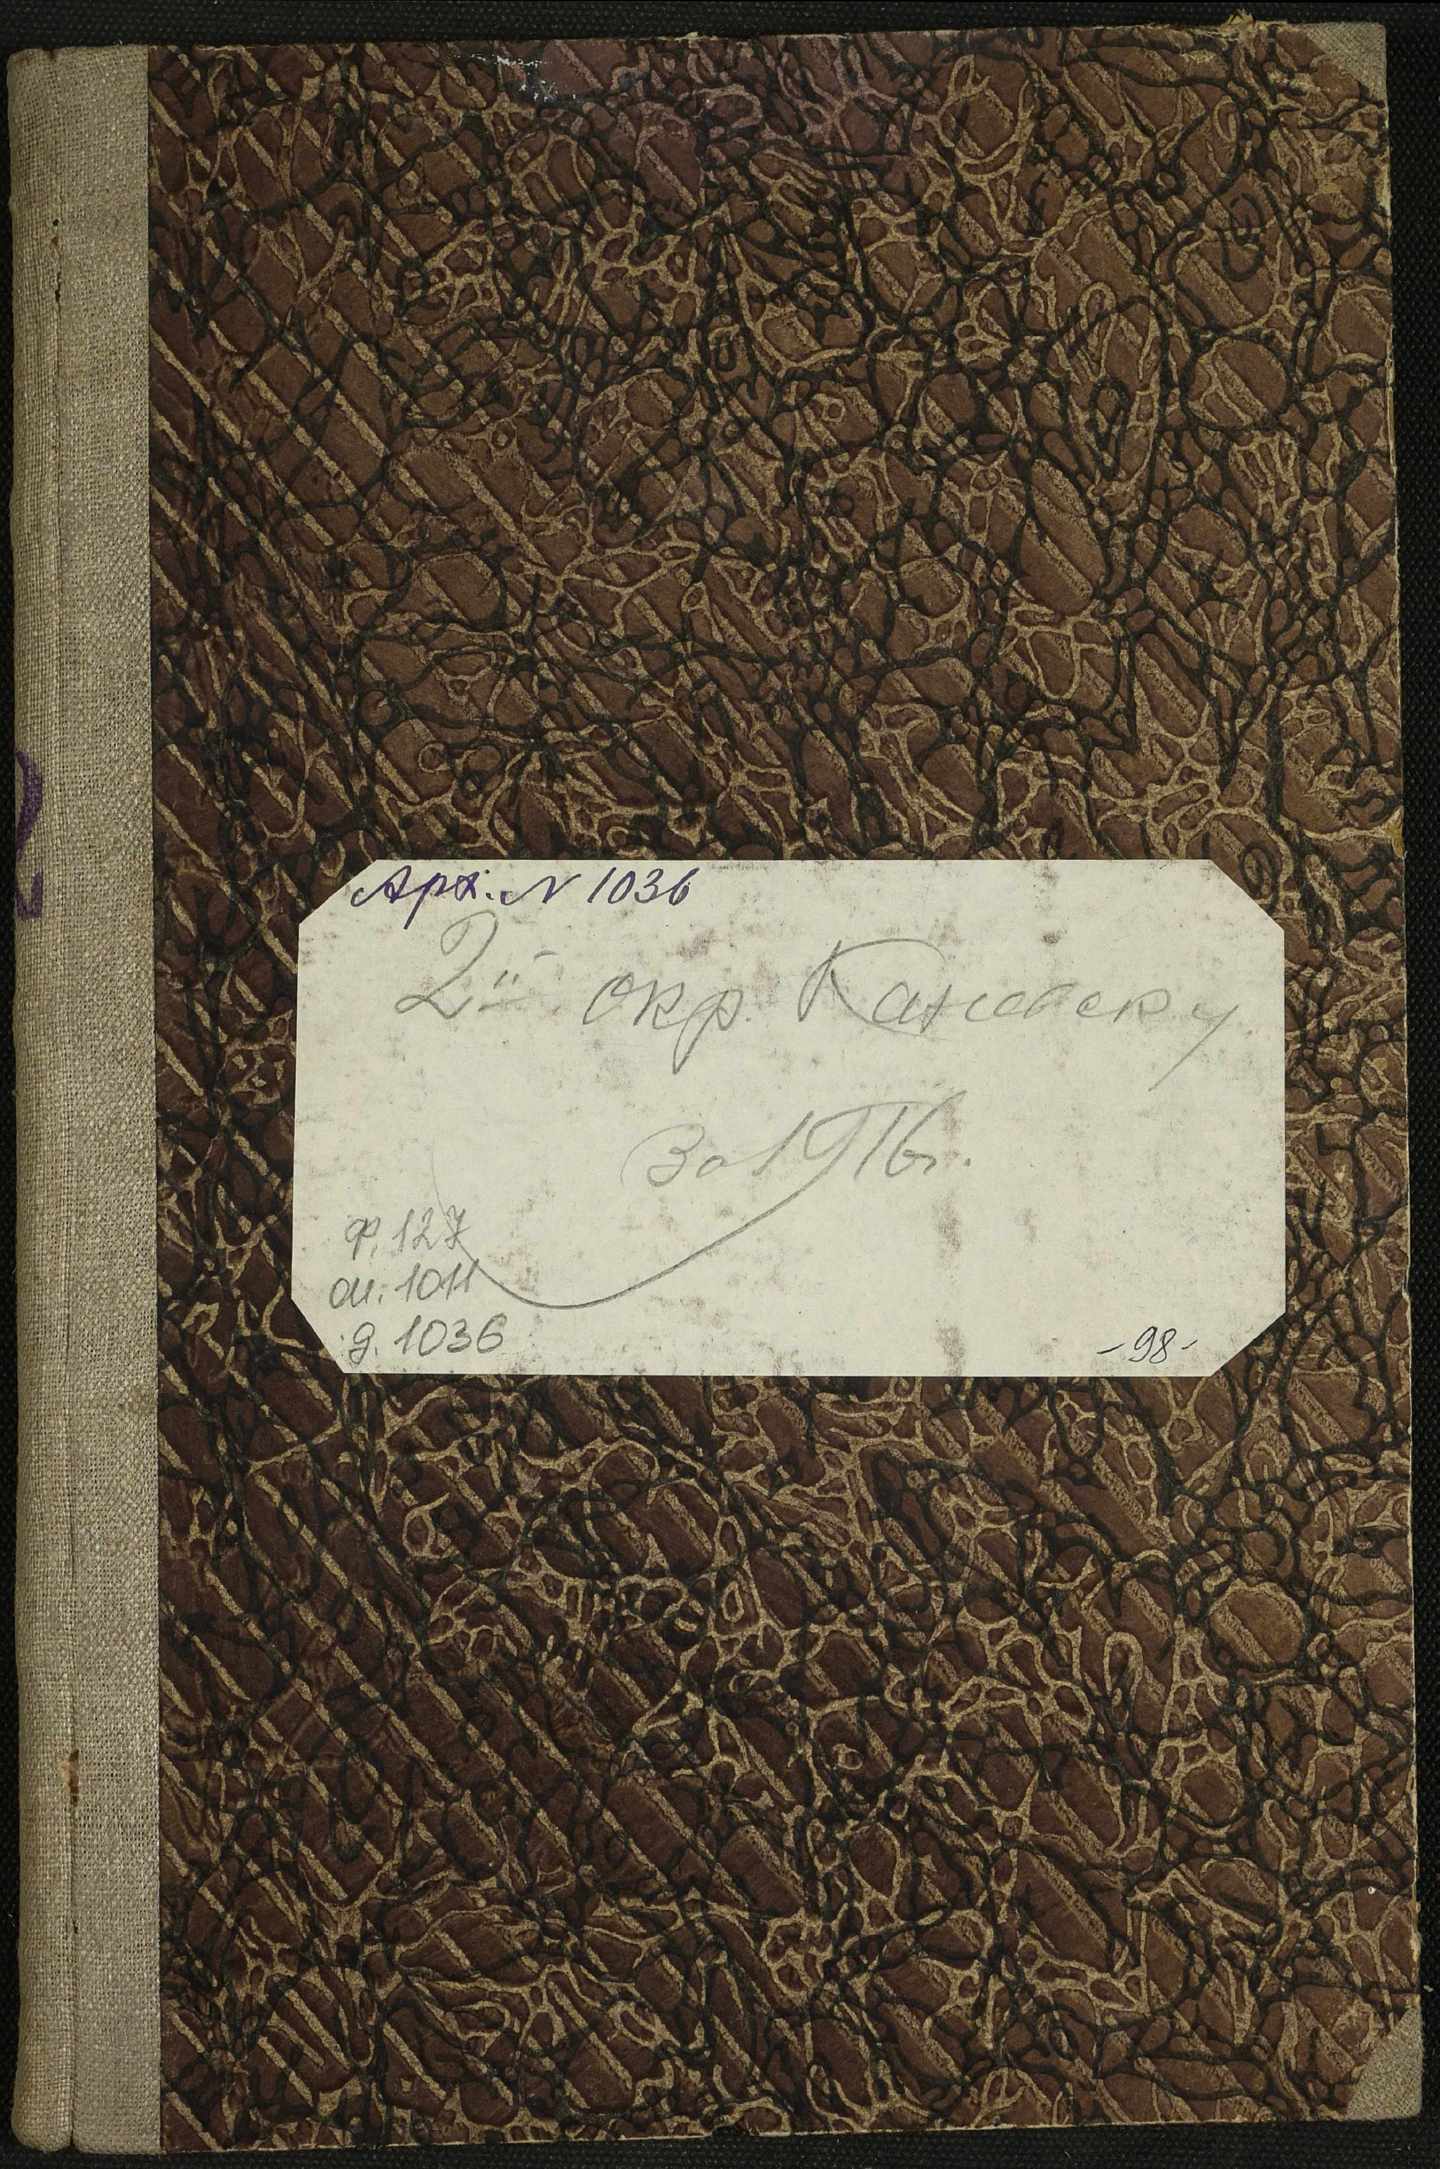 Арх. N 1036
2й окр. Каневску
За 1916 г.
ф. 127
оп. 1011
д. 1036
-98-